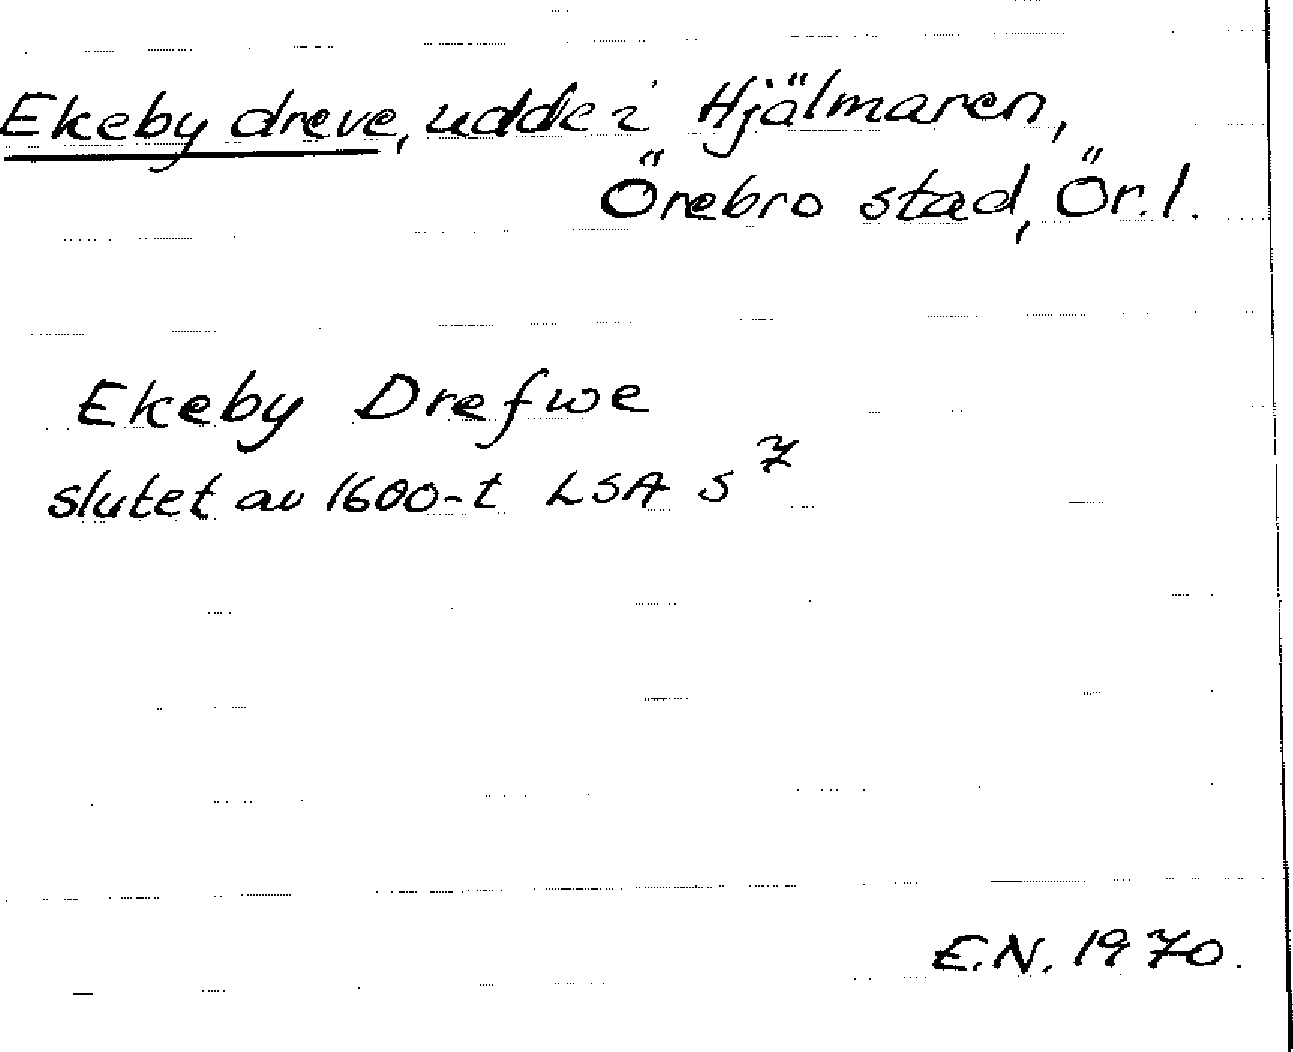 Ekeby dreve, udde i Hjälmaren,
Örebro stad, Ör.l.
Ekeby Drefwe
slutet av 1600-t LSA S 7
E.N. 1970.